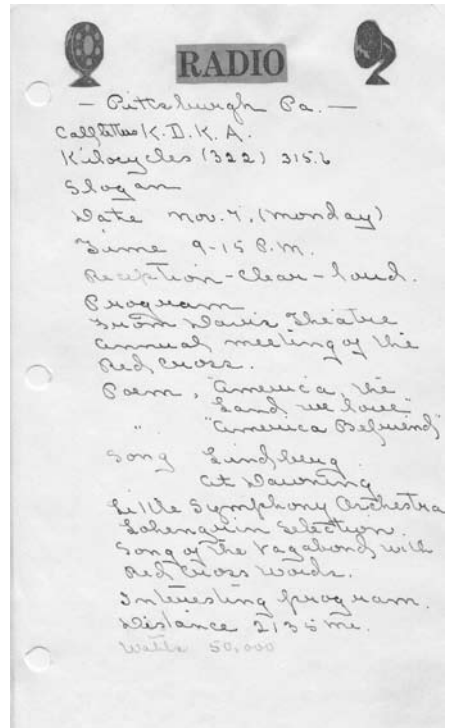 RADIO
- Pittsburgh Pa. -
Call letters K.D.K.A.
Kilocycles (322) 315.6
Slogan
Date Nov. 7, (Monday)
Time 9-15 P.M.
Reception - Clear - loud.
Program
From Davis Theatre
annual meeting of the
Red Cross.
Poem, "America, the
Land we love"
" "America Befriend"
Song Lindberg
At Dawning
Little Symphony Orchestra
Lohengrin Selection.
Song of the Vagabond with
Red Cross words.
Interesting program.
Distance 2135 mi.
Watts 50,000